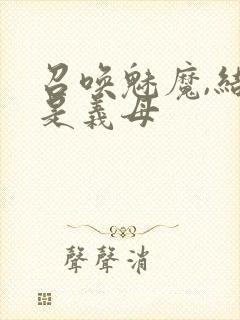 召唤魅魔,結
是義母
聲聲消